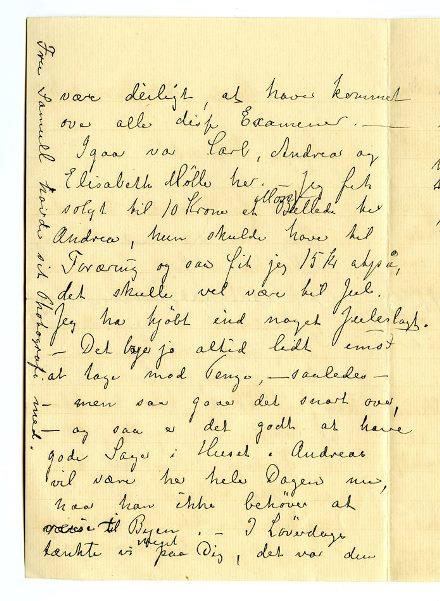 være deiligt, at have kommet
over alle disse Examener. —
Igaar var Carl, Andrea og
Elisabeth Mølle her. — Jeg fik
solgt til 10 Krone et Mose Billede til
Andrea, hun skulde have til
Foræring og saa fik jeg 15 Kr atpaa,
det skulle vel være til Jul.
Jeg har kjøbt ind noget Juleslagt.
— Det er jo altid lidt imod
at tage mod Penge, — saaledes —
— men saa gaar det snart over,
— og saa er det godt at have
gode Sager i Huset. Andreas
vil være her hele Dagen nu,
naar han ikke behøver at
til Byen. — I Løverdags
tænkte vi meget paa Dig, det var den
Fru Samuell havde sit Photografi med.